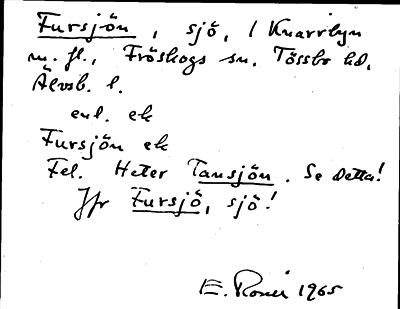 Fursjön, sjö, i Knarrbyn
m. fl., Fröskogs sn. Tössbo hd,
Älvsb. l.
enl. ek
Fursjön ek
Fel. Heter Tansjön. Se detta!
Jfr Fursjö, sjö!
E. 1965